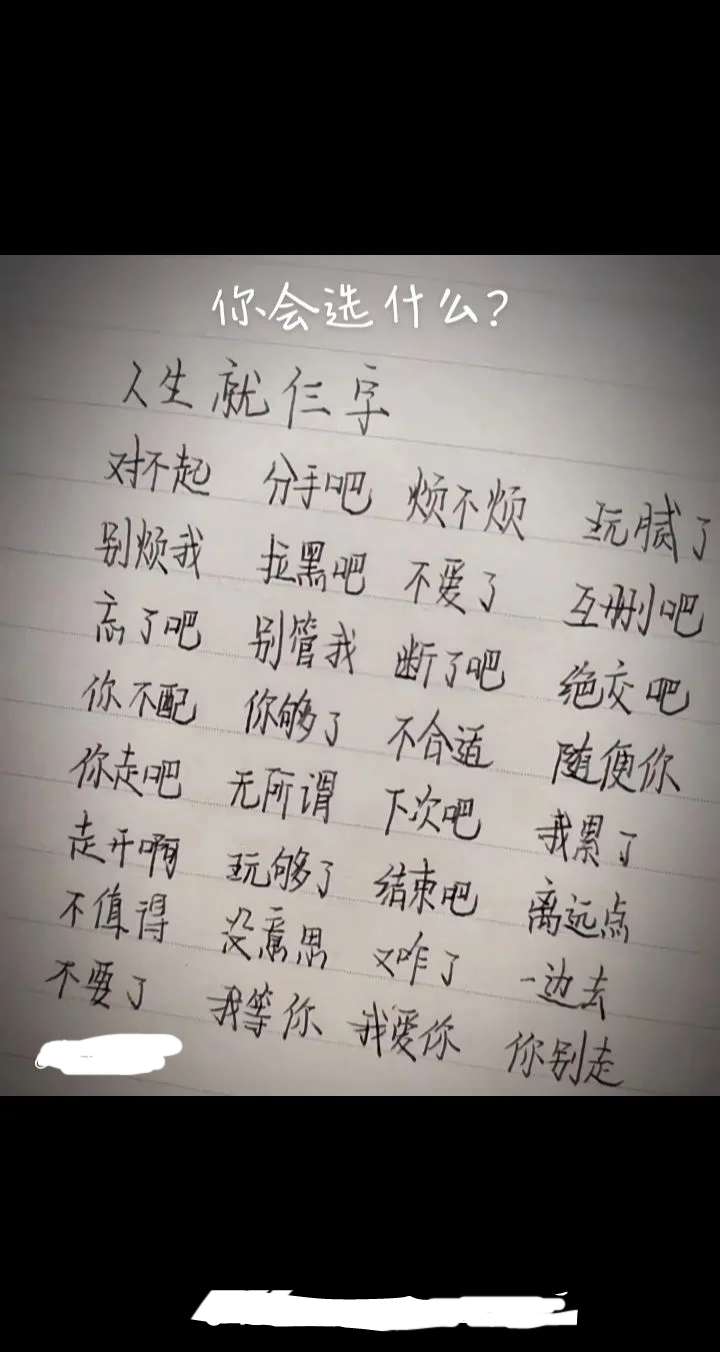 你会选什么?
人生就仨字
对不起 分手吧 烦不烦 玩腻了
别烦我 拉黑吧 不爱了 互删吧
忘了吧 别管我 断了吧 绝交吧
你不配 你够了 不合适 随便你
你走吧 无所谓 下次吧 我累了
走开啊 玩够了 结束吧 离远点
不值得 没意思 又咋了 一边去
不要了 我等你 我爱你 你别走